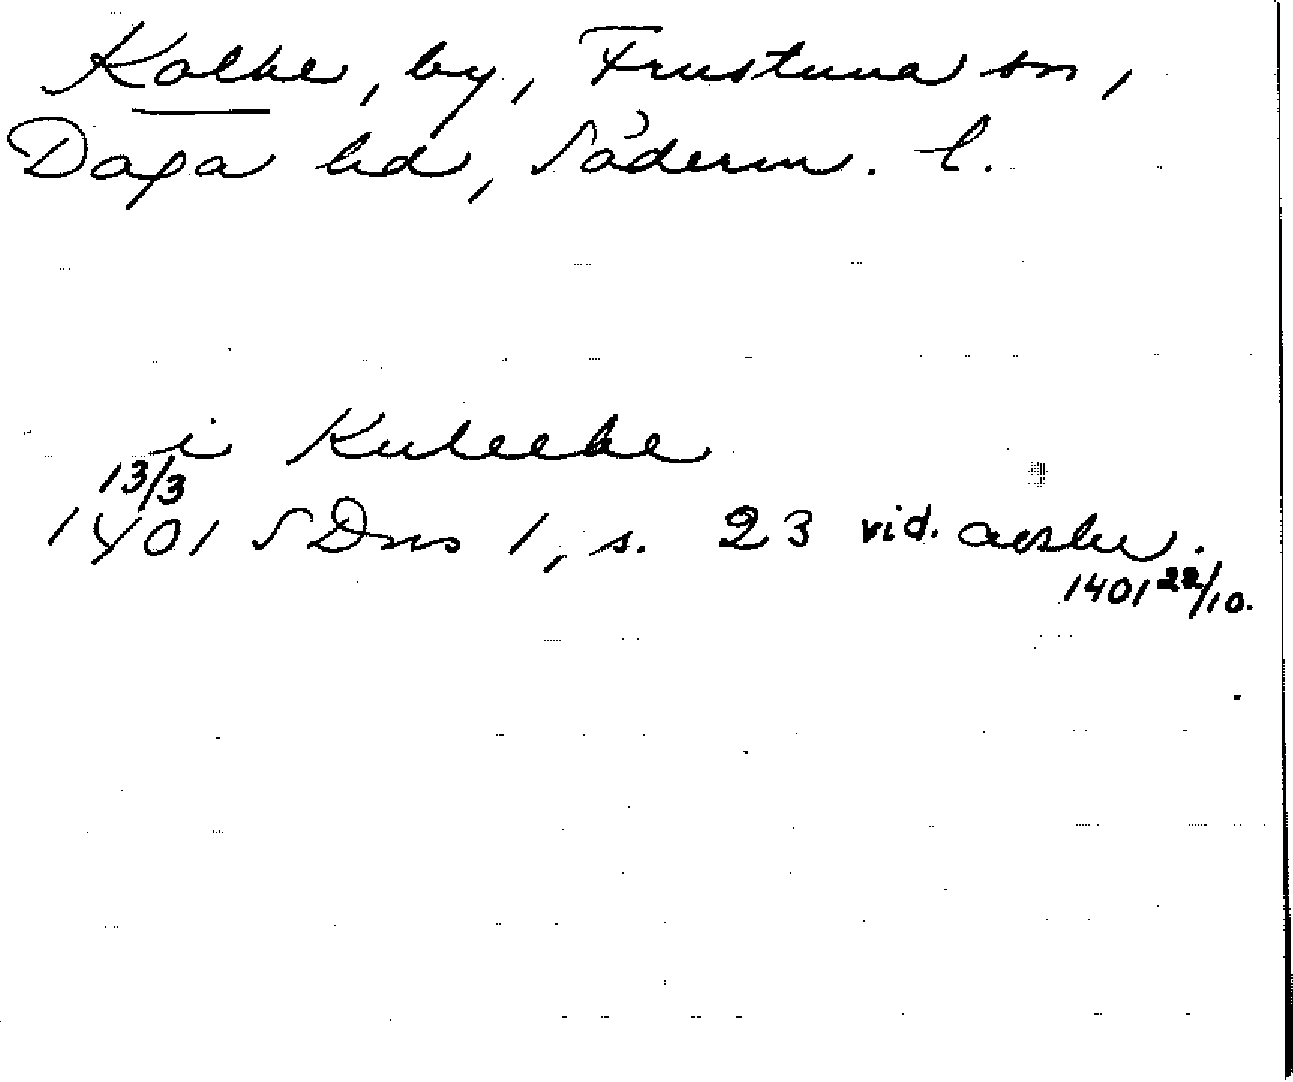 Kolbe, by, Frustuna sn,
Daga hd, Söderm. l.
i Kuleebe
13/3
1401 SDns 1, s. 23 vid. avskr.
1401 22/10.